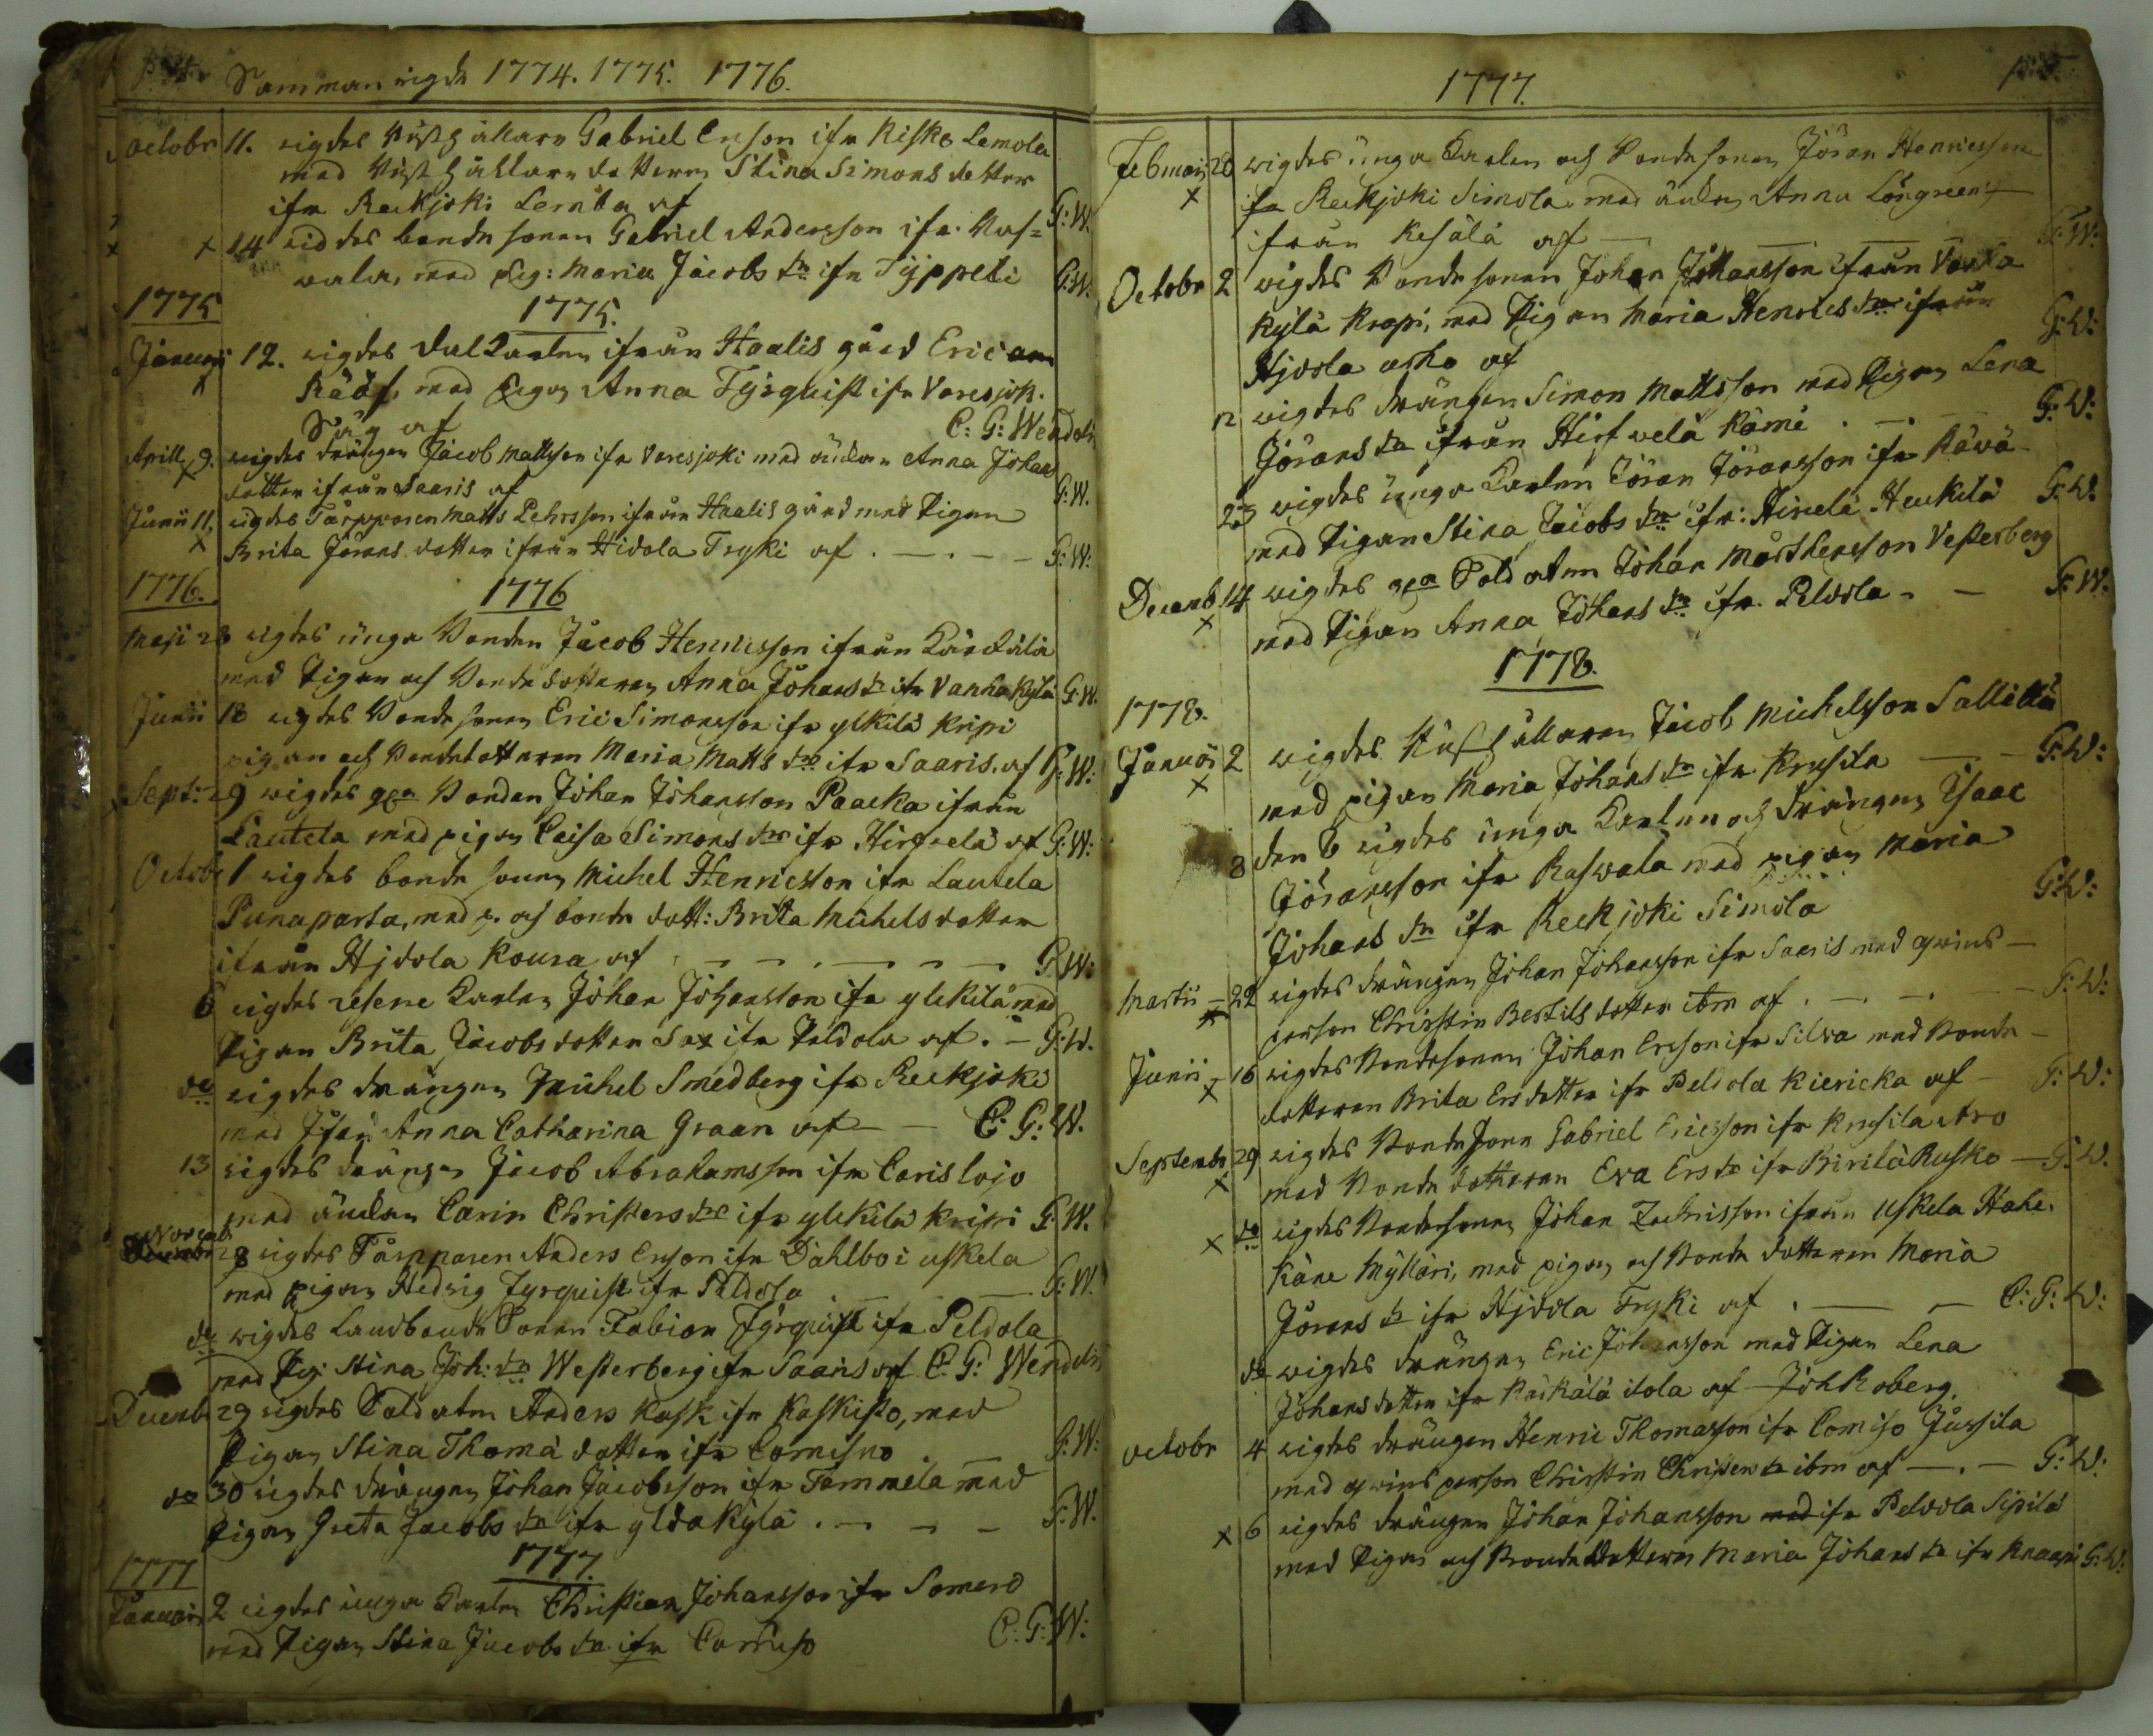 Sammanvigde 1774. 1775. 1776.
octobr 11. vigdes Rusthållare Gabriel Erison ifr Kisko Lemola
med Rusthållare dottern Stina Simons dotter
ifr Reckjoki Lemola af G: W.
14 vigdes bonde sonen Gabriel Andersson ifr. Ras=
wala, med Pig: Maria Jacobs dr ifr Typpeli G:W.
1775 1775.
Januarii 12. vigdes ifrån Haalis gård Eric
Rääf, med Pigan Anna Fyrquist ifr Varesjok.
Såg af C: G: Wendelin
Aprill 9. vigdes drängen Jacob Mattsson ifr Varesjoki med änkan Anna Johans
dotter ifrån Saaris af G:W.
Junii 11. vigdes Tårpparen Matts Pehrsson ifrån Haalis gård med Pigan
Brita Jörans dotter ifrån Hidola Tryki af G:W:
1776. 1776
Maji 28 vigdes unga Bonden Jacob Henricsson ifrån Kärkälä
med Pigan och Bonde dotteren Anna Johans dr ifr Vanhakylä G:W.
Junii 18 vigdes Bonde sonen Eric Simonsson ifr ylikilä Kripi
pigan och Bondedotteren Maria Matts dr ifr Saaris. af G:W:
Sept: 29 vigdes Bonden Johan Johansson Paacka ifrån
Lautela med pigan Caisa Simons dr ifr Hirfvelä af G:W:
Octobr 1 vigdes bonde sonen Michel Henricsson ifr Lautela
Punaparta, med p. och bonde dott: Brita Michels dotter
ifrån Hjdola Koura af G:W:
6 vigdes Karlen Johan Johansson ifr ylikilä med
Pigan Brita Jacobs dotter Sax ifr Peldola af. G:W.
do vigdes drängen Michel Smedberg ifr Reckjoki
med Anna Catharina Graan af C: G: W.
13 vigdes drängen Jacob Abrahamsson ifr Carislojo
med änkan Carin Christers dr ifr ylikilä Kripi G:W.
Novemb 28 vigdes Tårpparen Anders Erson ifr Dahlbo i uskela
med pigan Hedvig Fyrquist ifr Peldola G:W.
do vigdes Landbonde Sonen Fabian Fyrquist ifr Peldola
med Pig: Stina Joh: dr Westerberg ifr Saaris af C: G: Wendelin
Decemb 29 vigdes Soldaten Anders Kask ifr Kaskisto, med
Pigan Stina Thoma dotter ifr G:W:
do 30 vigdes drängen Johan Jacobsson ifr Tammela med
Pigan Greta Jacobs dr ifr yldakylä. G:W.
1777 1777.
Januarii 2 vigdes unga Karlen Christian Johansson ifr Somero
med Pigan Stina Jacobs dr ifr C: G: W:
1777.
Februarii 28 wigdes unga Karlen och Bondesonen Jöran Henricsson
fr Reckjoki Simola med änkan Anna Löngreen
ifrån Kesälä af G:W:
Octobr 2 wigdes Bonde sonen Johan Johansson ifrån Vanha
kylä Krapi, med Pigan Maria Henrics dr ifrån
Hjdola af G:W:
12 wigdes drängen Simon Mattsson med Pigan Lena
Jörans dr ifrån Hirfwelä Rämi G:W:
23 wigdes unga Karlen Jöran Jöransson ifr
med Pigan Stina Jacobs dr ifr: Hirvelä Heikilä G:W.
Decemb 14 wigdes Soldaten Johan Mårthensson Vesterberg
med Pigan Anna Johans dr ifr. Peldola G:W.
1778.
1778.
Januarii 2 wigdes Rusthållaren Jacob Michelsson Sallittu
med pigan Maria Johans dr ifr Krusila G:W:
8 den 8 vigdes unga Karlen och Drängen Isaac
Jöransson ifr Raswala med pigan Maria
Johans dr ifr Reckjoki Simola G:W:
Martii 22 vigdes drängen Johan Johansson ifr Saaris med qwins
person Christin Bertils dotter ibm af. G:W:
Junii 16 vigdes Bondesonen Johan Ersson ifr Silva med Bonde
dotteren Brita Ersdotter ifr Peldola Kiericka af G:W:
Septembr 29 vigdes Bonde sonen Gabriel Ericsson ifr Krusila Aro
med Bonde dotteren Eva Ers dr ifr Pirilä Rusko G:W.
do vigdes Bondesonen Johan Zachrisson ifrån Uskela Hähe
käne Mylläri, med pigan och Bonde dotteren Maria
Jörans dr ifr Hjdola Tryki af C: G: W:
do wigdes drängen Eric Johansson med Pigan Lena
Johans dotter ifr Kärkälä itola af Joh Roberg.
octobr 4 vigdes drängen Henric Thomasson ifr Comiso Jussila
med qwins person Christin Christers dr ibm af G:W:
6 vigdes drängen Johan Johansson ifr Peldola Sipilä
med Pigan och Bonde dotteren Maria Johans dr ifr Knaapi G:W: